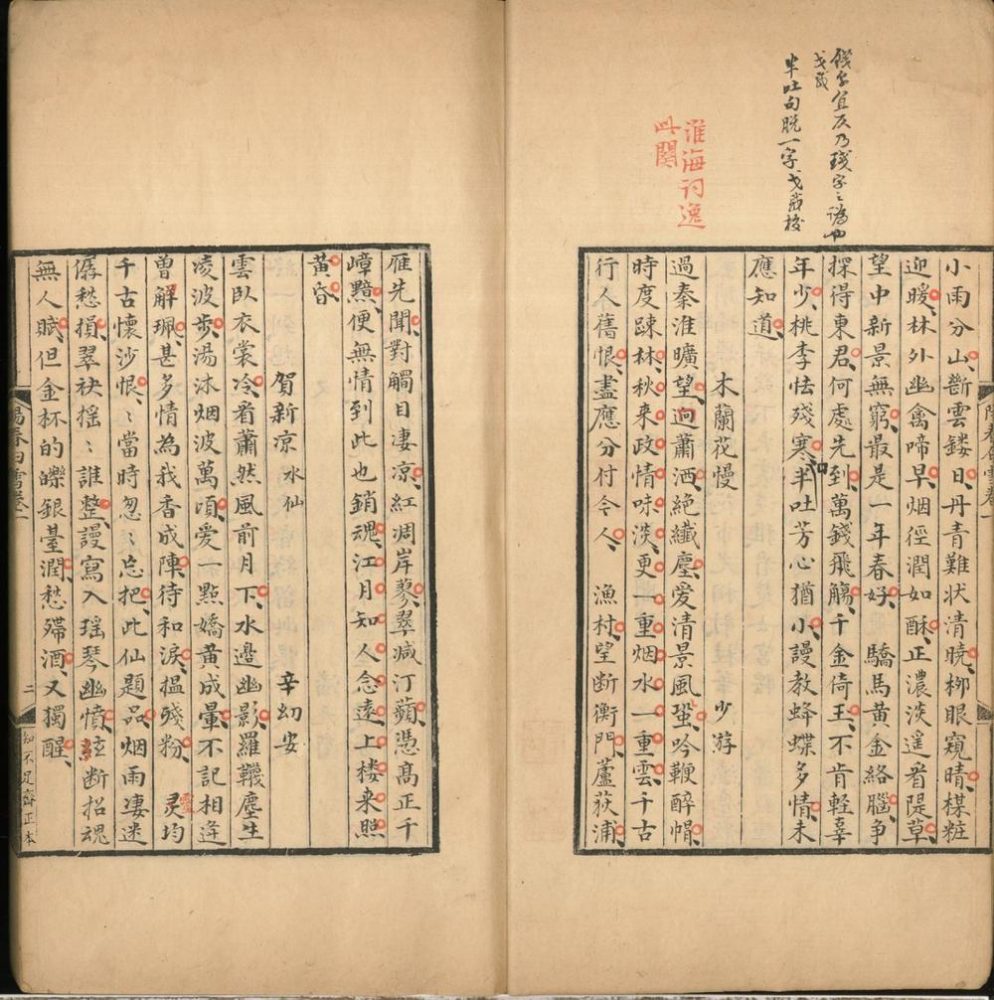 錢字宜仄乃琖字之譌也
戈載
半吐句脫一字戈校
淮海词逸
此闋
陽春白雪卷一
小雨分山斷雲鏤日丹青難状清曉栁眼窺晴楳粧
迎暖林外幽禽啼早烟徑潤如酥正濃淡遥看隄草
望中新景無窮最是一年春好 驕馬黄金絡腦争
探得東君何處先到萬錢飛觴千金倚玉不肯軽辜
年少桃李怯殘寒半吐芳心猶小謾教蜂蝶多情未
應知道
木蘭花慢 少游
過秦淮曠望迥蕭洒絶纖塵愛清景風蛩吟鞭醉㡌
時度踈林秋来政情味淡更一重烟水一重雲千古
行人舊恨盡應分付今人 漁村望断衡門蘆荻浦
雁先聞對觸目凄凉紅凋岸蓼翠减汀蘋憑髙正千
嶂黯便無情到此也銷魂江月知人念逺上楼来照
黄昏
賀新凉 水仙 辛幼安
雲臥衣裳冷看蕭然風前月下水邉幽影羅韈塵生
凌波步湯沐烟波萬頃愛一點嬌黄成暈不記相逢
曽解珮甚多情為我香成陣待和淚揾殘粉 灵均
千古懷沙恨〻當時忽〻忘把此仙題品烟雨凄迷
僝愁損翠袂揺〻誰整謾寫入瑶琴幽憤絃断招魂
無人賦但金杯的皪銀臺潤愁殢酒又獨醒
陽春白雪卷一 二 知不足齋正本